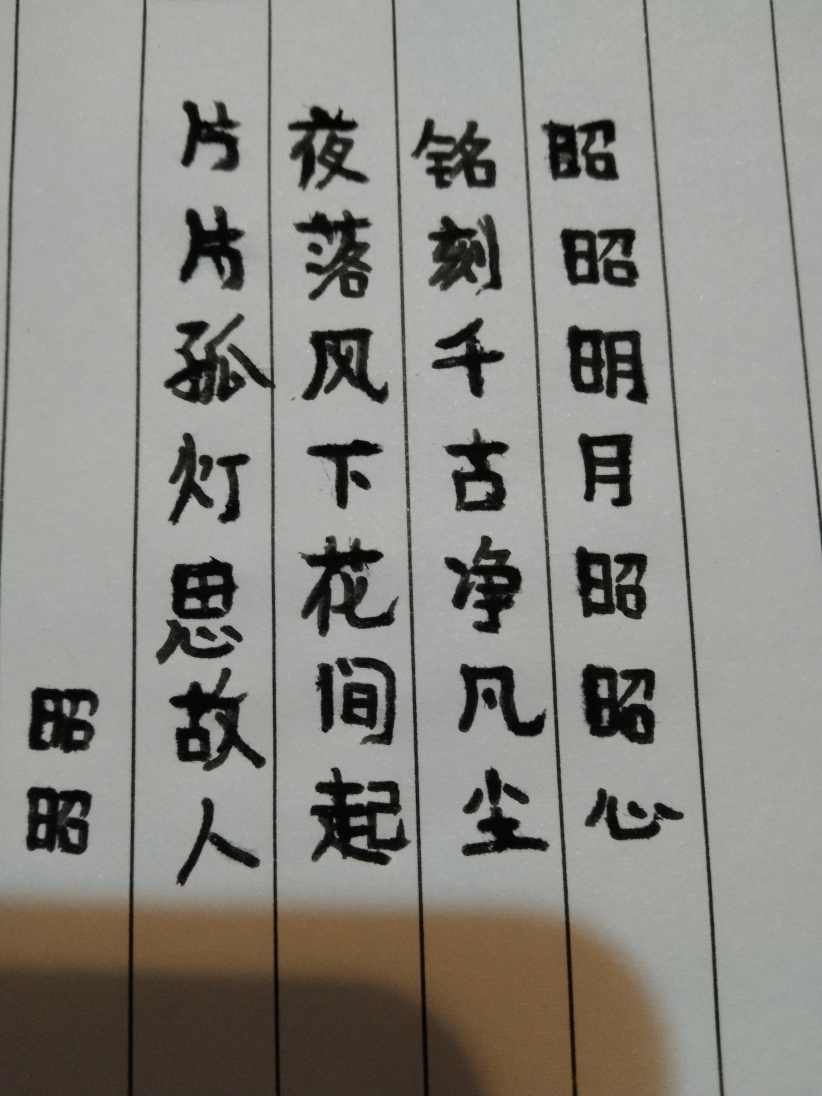 昭昭明月昭昭心
铭刻千古净凡尘
夜落风下花间起
片片孤灯思故人
昭昭